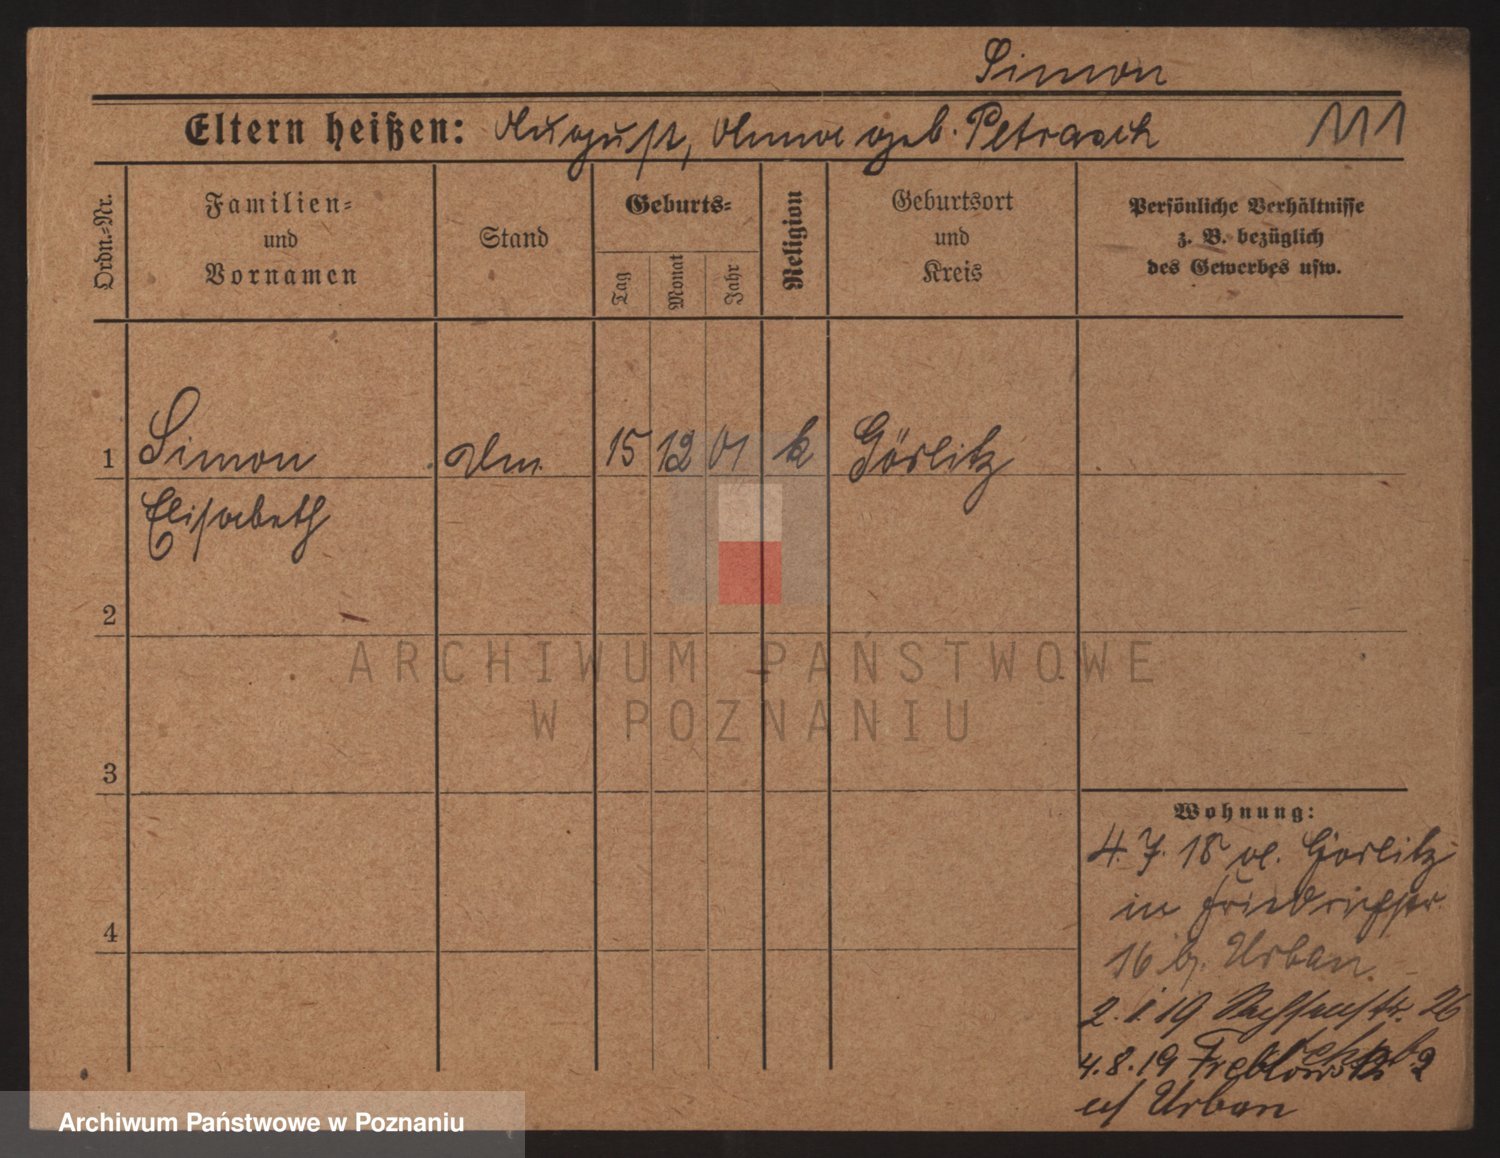 Simon
Eltern heißen: August, Anna geb. Petrasch
111
Ordn.=Nr.
Familien=
und
Vornamen
Stand
Geburts=
Tag
Monat
Jahr
Religion
Geburtsort
und
Kreis
Persönliche Verhältnisse
z. B. bezüglich
des Gewerbes usw.
1
Simon
15 12 01 k Görlitz
Elisabeth
2
3
4
Wohnung:
4. 7. 18 v. Görlitz
in Friedrichstr.
16 b. Urban.
2. 1. 19 26
4. 8. 19 2
Urban
ARCHIWUM PAŃSTWOWE
W POZNANIU
Archiwum Państwowe w Poznaniu